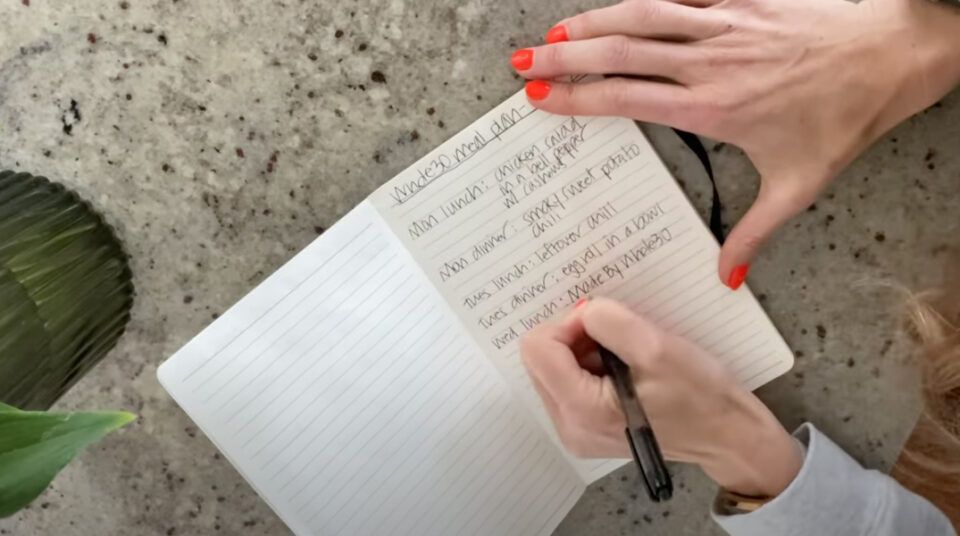 Whole30 meal plan-
Mon lunch: chicken salad
in a bell pepper
w/ cashews
Mon dinner: smoky sweet potato
chili
Tues lunch: leftover chili
Tues dinner: egg roll in a bowl
Wed lunch: Made By Whole30